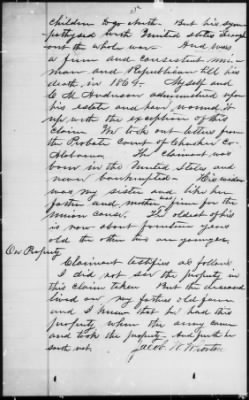 5
children to go North. But his sym-
pathized with United States through
out the whole war. And was
a firm and consistent union
man and Republican till his
death, in 1869. Myself and
C. M. Anderson administered upon
his estate and have wound it
up with the exception of this
claim. We took out letters from
the Probate Court of Cherokee Co.
Alabama. The Claimant was
born in the United States and
never bankrupted. His widow
was my sister and like her
father and mother was firm for the
Union cause. The oldest of his
is now about fourteen years
old the other two are younger.
On Property
Claimant testifies as follows.
I did not see the property in
this claim taken. But the deceased
lived on my father's old farm
and I know that he had this
property when the army came
and took the property. And further he
saith not.
Jacob W.